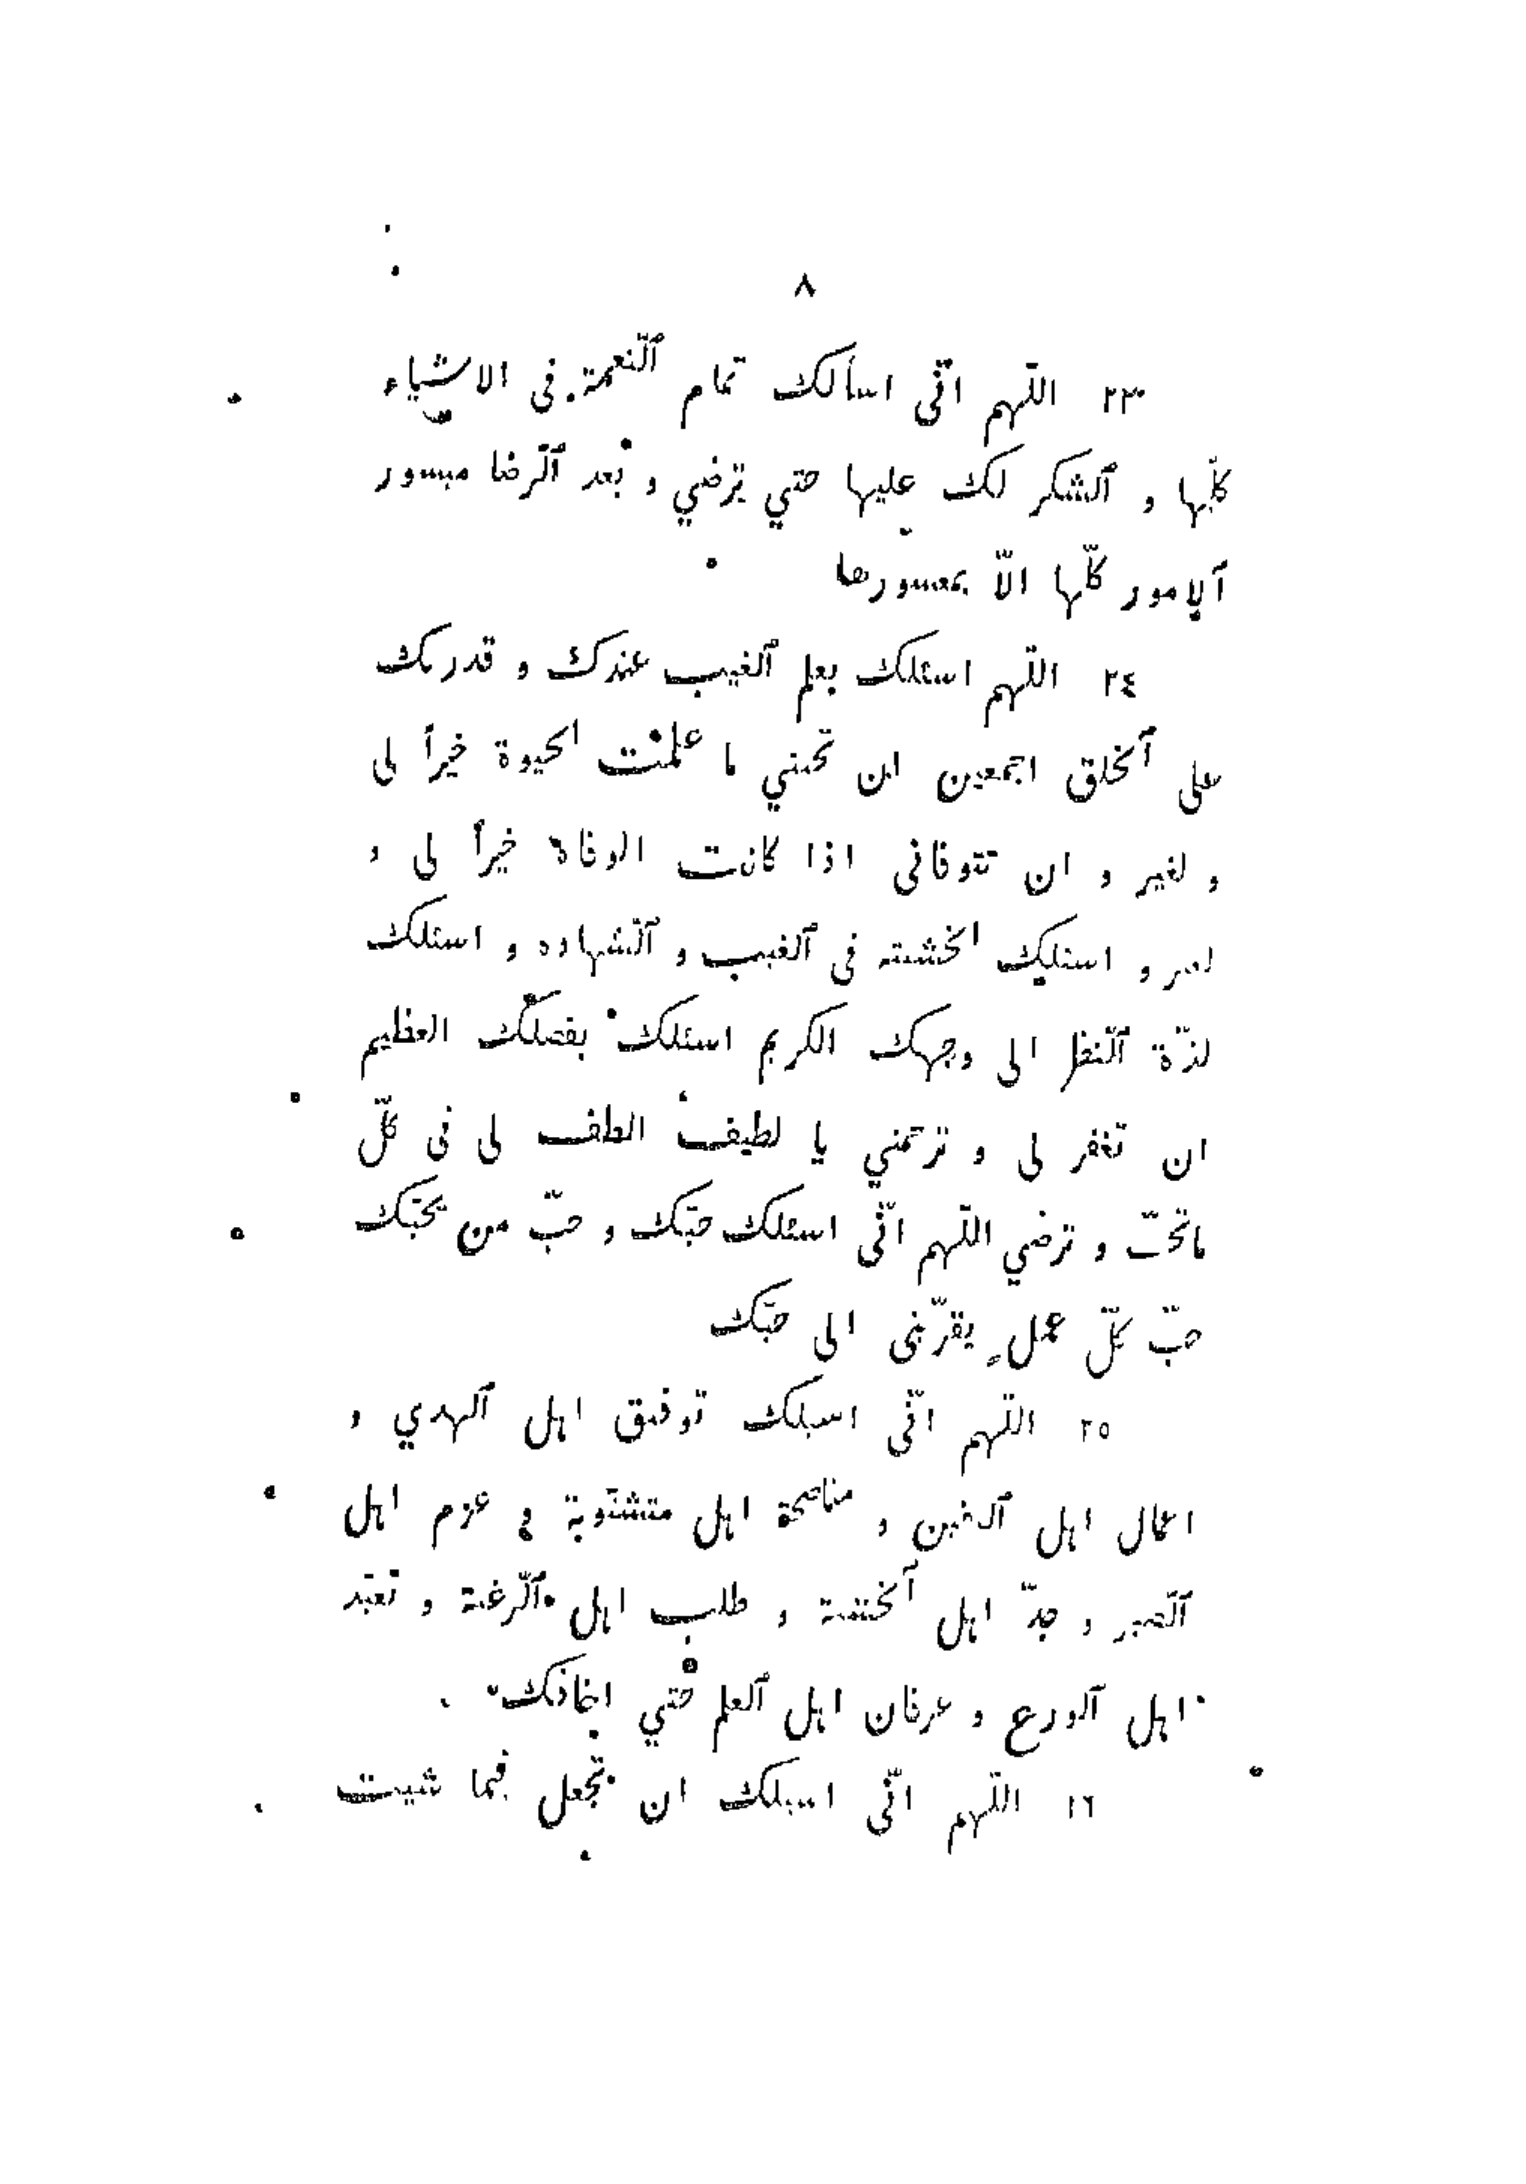 ٨
٢٣ اللّهم انّى اسألك تمام ٱلنّعمة فى الاشياء
كلّها و ٱلشكر لك عليها حتي ترضي و بعد ٱلرّضا ميسور
ٱلامور كلّها الاّ بمعسورها
٢٤ اللّهم اسئلك بعلم ٱلغيب عندك و قدرتك
على ٱلخلق اجمعين ان تحيني ما علمت الحيوة خيراً لى
و لغير و ان تتوفانى اذا كانت الوفاة خيراً لى و
لغير و اسئلك الخشية فى ٱلغيب و ٱلشّهاده و اسئلك
لذّة ٱلنّظر الى وجهك الكريم اسئلك بفضلك العظيم
ان تغفر لى و ترحمني يا لطيف الطف لى فى كلّ
ما تحبّ و ترضي اللّهم انّى اسئلك حبّك و حبّ من يحبّك
حبّ كلّ عملٍ يقرّبنى الى حبّك
٢٥ اللّهم انّى اسئلك توفيق اهل ٱلهدي و
اعمال اهل ٱليقين و مناصحة اهل و عزم اهل
ٱلصّبر و جدّ اهل ٱلخشية و طلب اهل ٱلرّغبة و تعبّد
اهل ٱلورع و عرفان اهل ٱلعلم حتّي اخافك
١٦ اللّهم انّى اسئلك ان تجعل فيما شيت